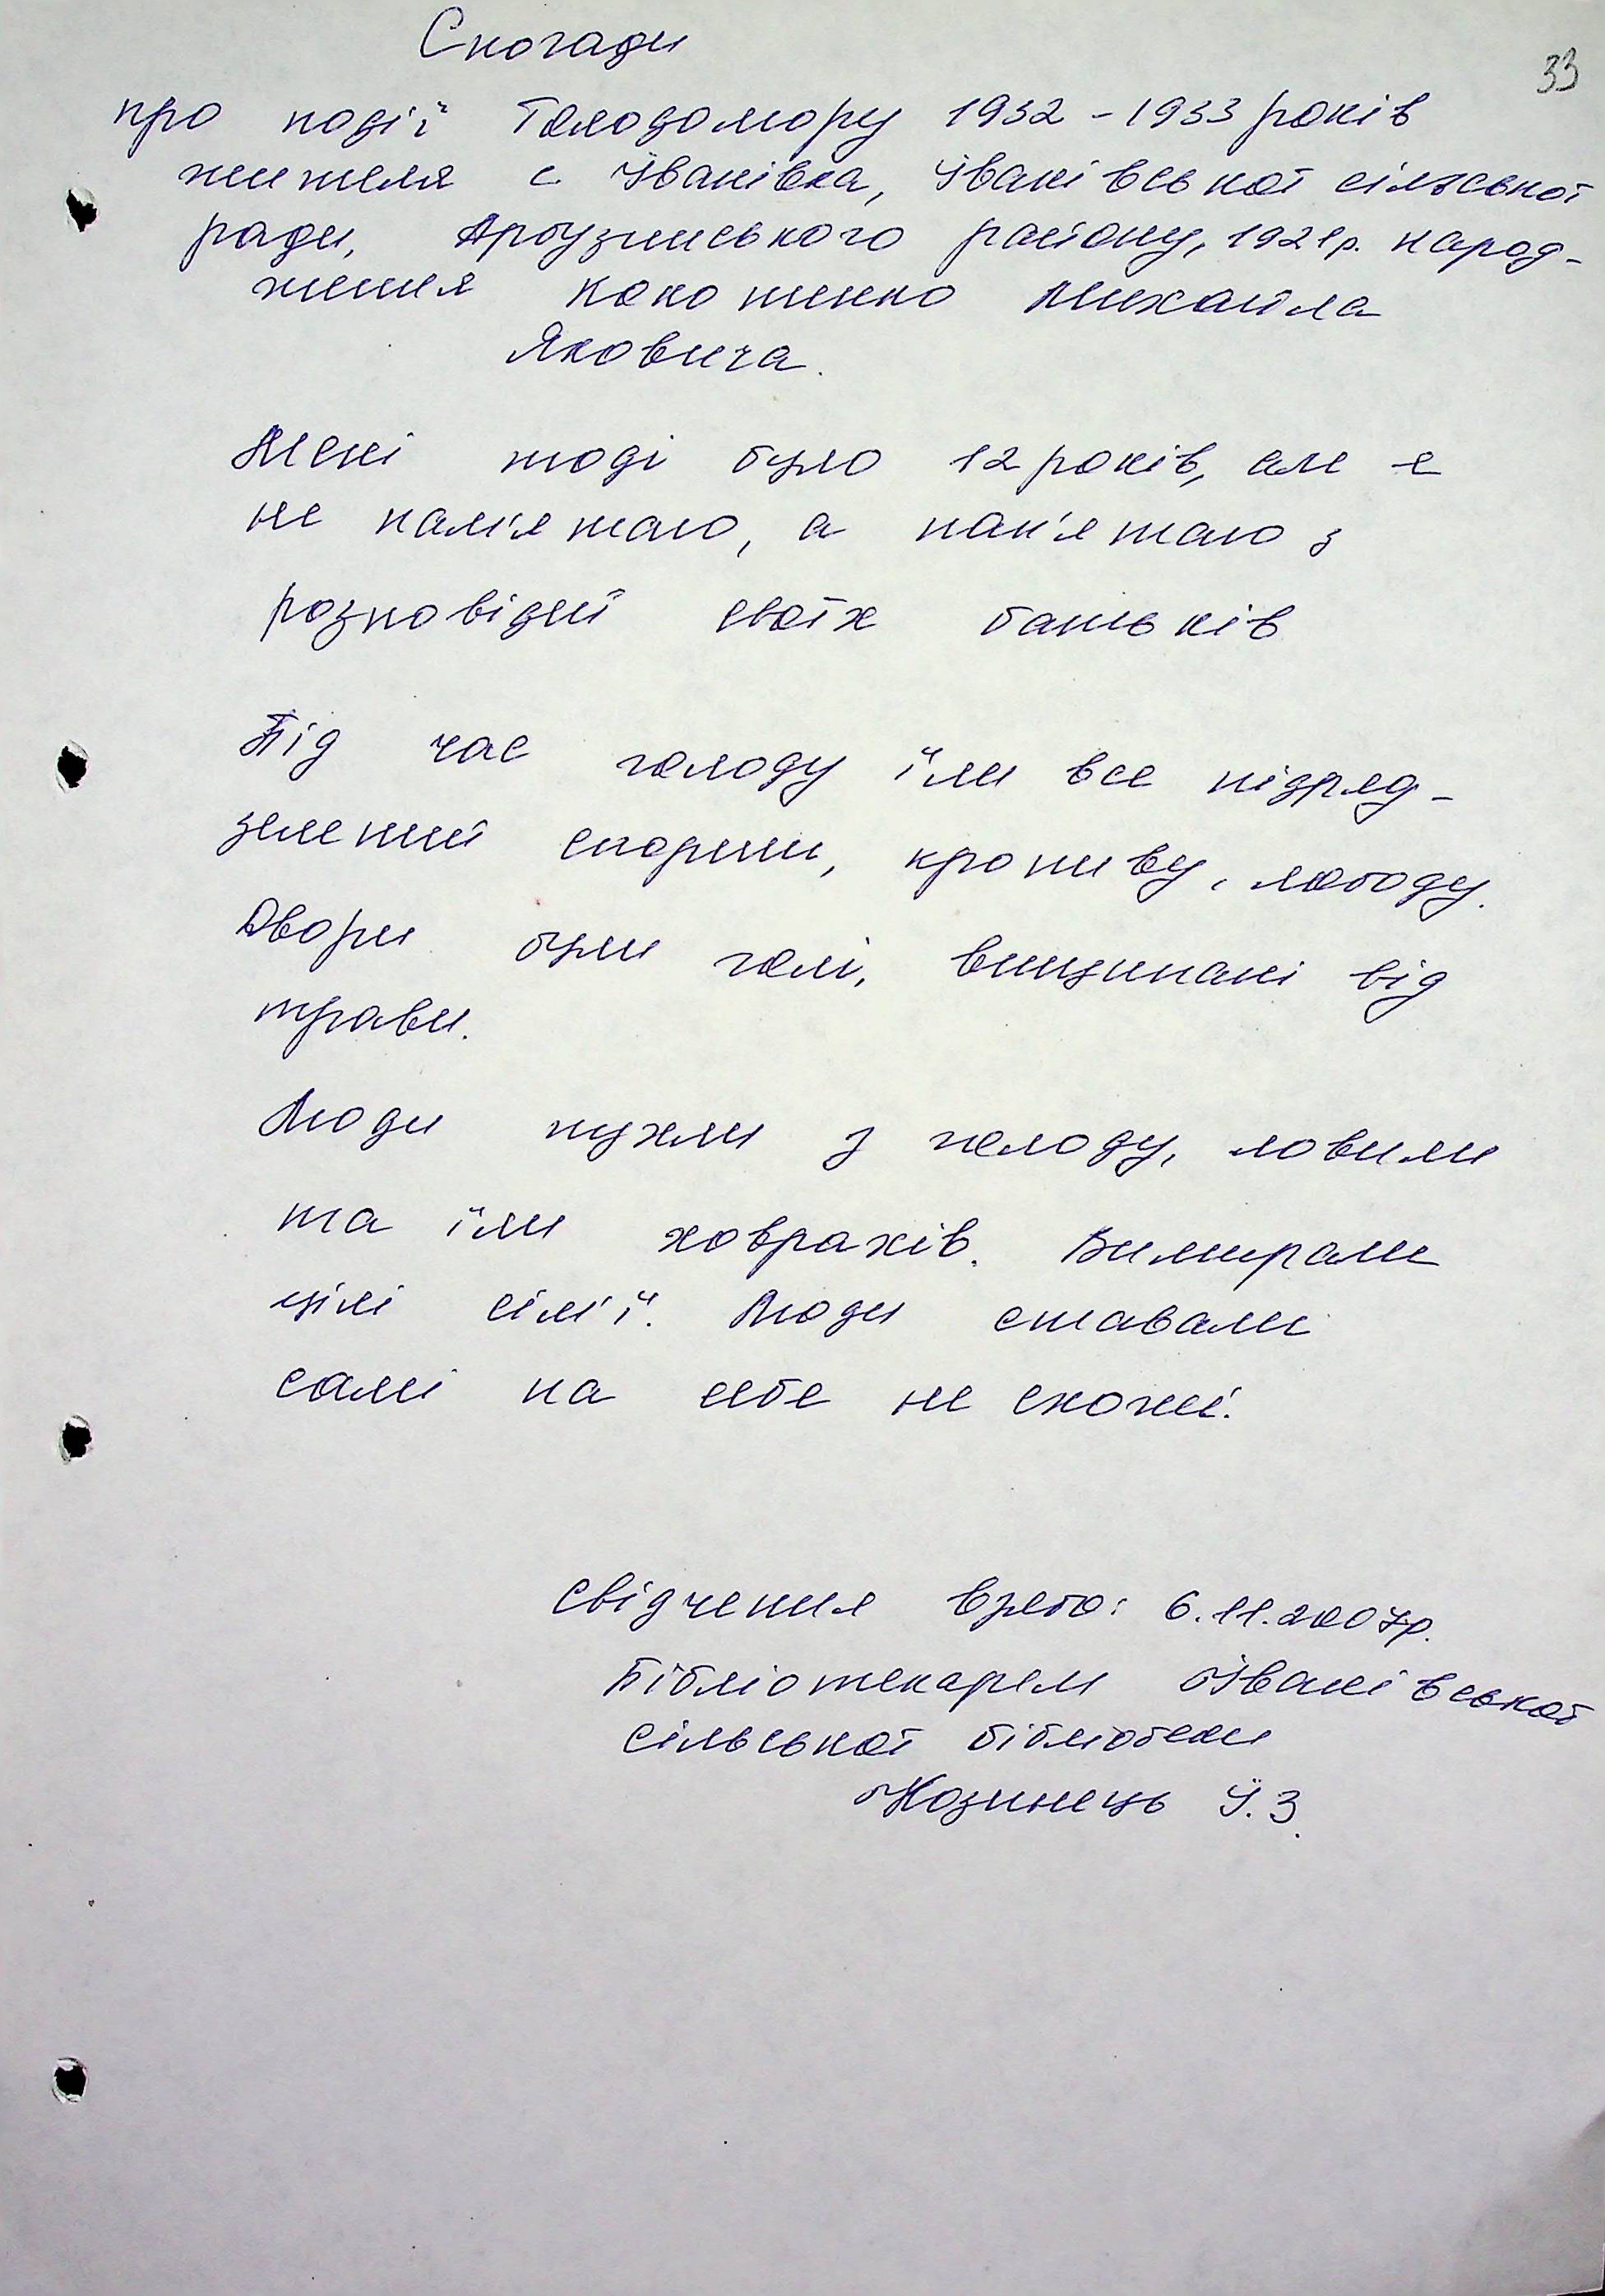 Спогади
33
про події Голодомору 1932-1933 років
жителя с Іванівка, Іванівської сільської
ради, Арбузинського району, 1921р. народ-
ження Кокотенко Михайла
Яковича.
Мені тоді було 12 років, але я
не пам'ятаю, а пам'ятаю з
розповідей своїх батьків
Під час голоду їли все підряд-
зелений спориш, кропиву, лободу.
Двори були голі, вищипані від
трави.
Люди пухли з голоду, ловили
та їли ховрахів. Вимирали
цілі сім'ї. Люди ставали
самі на себе не схожі.
Свідчення взято: 6.11.2007р.
Бібліотекарем Іванівської
сільської бібліотеки
Козинець І.З.